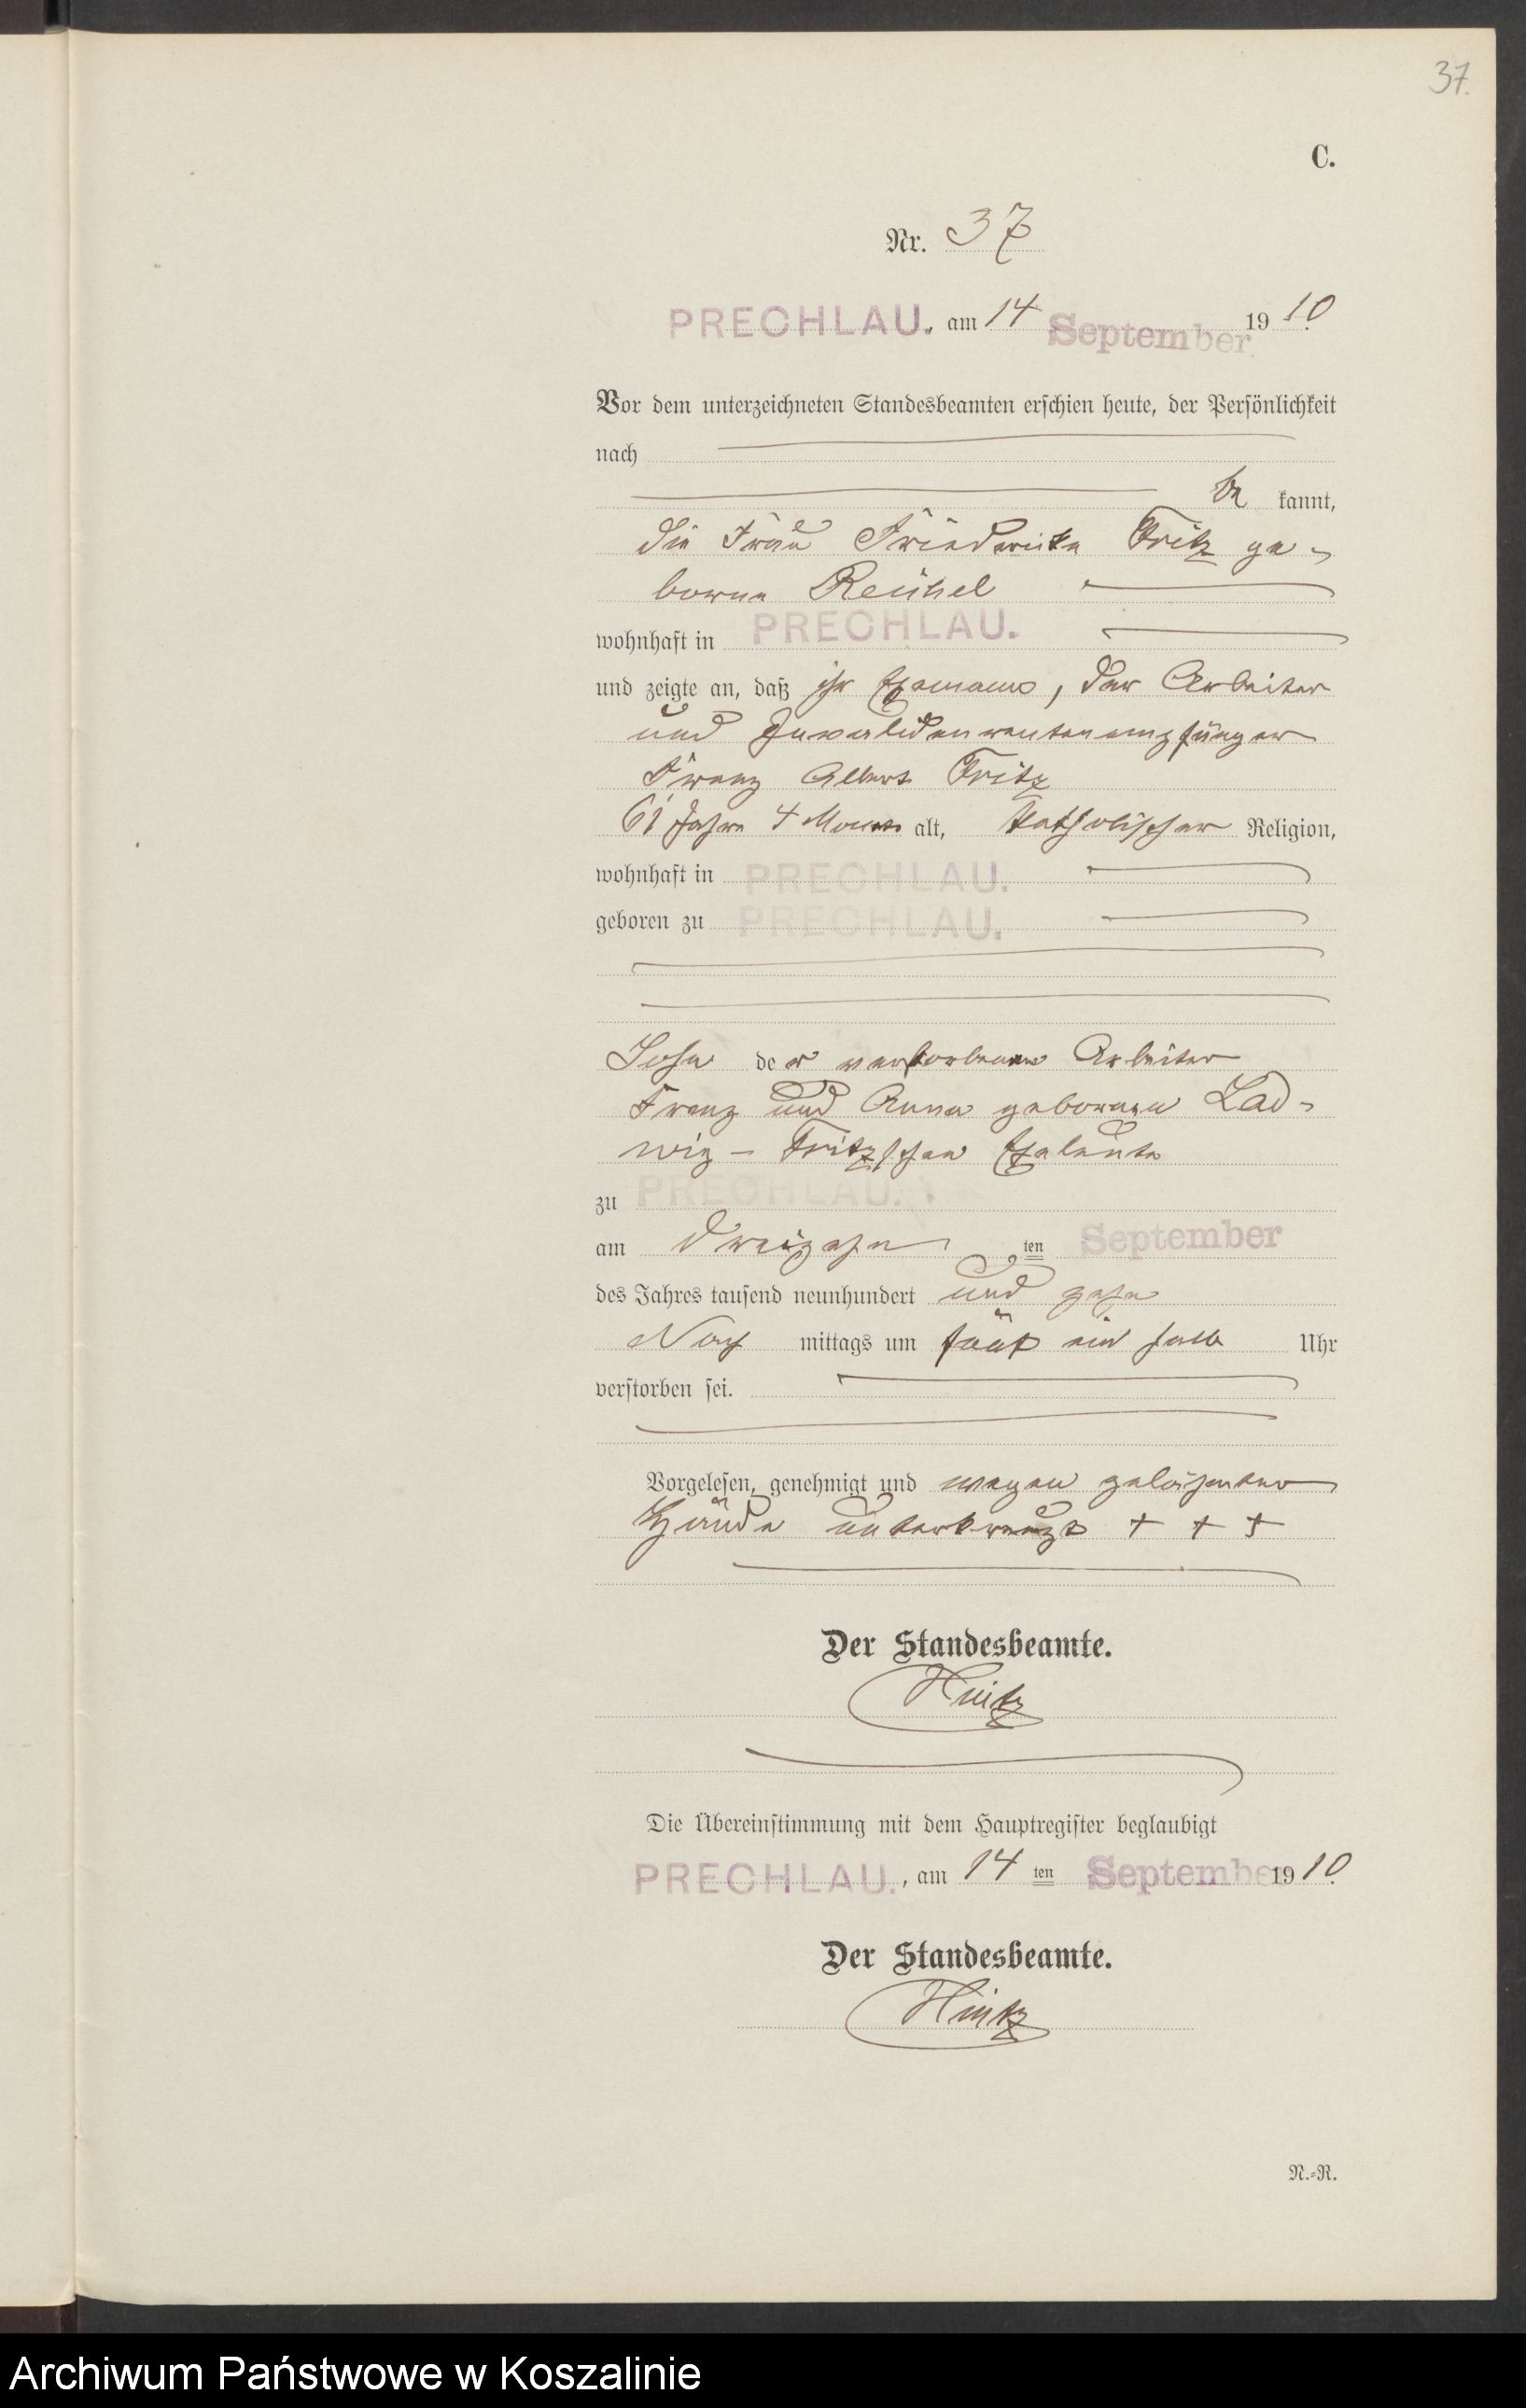 37.
C.
Nr. 37
PRECHLAU. am 14 September 1910.
Vor dem unterzeichneten Standesbeamten erschien heute, der Persönlichkeit
nach
be kannt,
die Frau Friederike Fritz ge-
borene Reichel
wohnhaft in PRECHLAU.
und zeigte an, daß ihr Ehemann, der Arbeiter
und Invalidenrentenempfänger
Franz Albert Fritz
61 Jahre 4 Monate alt, katholischer Religion,
wohnhaft in PRECHLAU.
geboren zu PRECHLAU.
Sohn der verstorbenen Arbeiter
Franz und Anna geborenen Lad-
wig - Fritzschen Eheleute
zu PRECHLAU.
am dreizehn ten September
des Jahres tausend neunhundert und zehn
Nach mittags um fünf ein halb Uhr
verstorben sei.
Vorgelesen, genehmigt und wegen gelähmter
Hände unterkreuzt + + +
Der Standesbeamte.
Hintz
Die Übereinstimmung mit dem Hauptregister beglaubigt
PRECHLAU., am 14 ten September 1910.
Der Standesbeamte.
Hintz
N.-R.
Archiwum Państwowe w Koszalinie